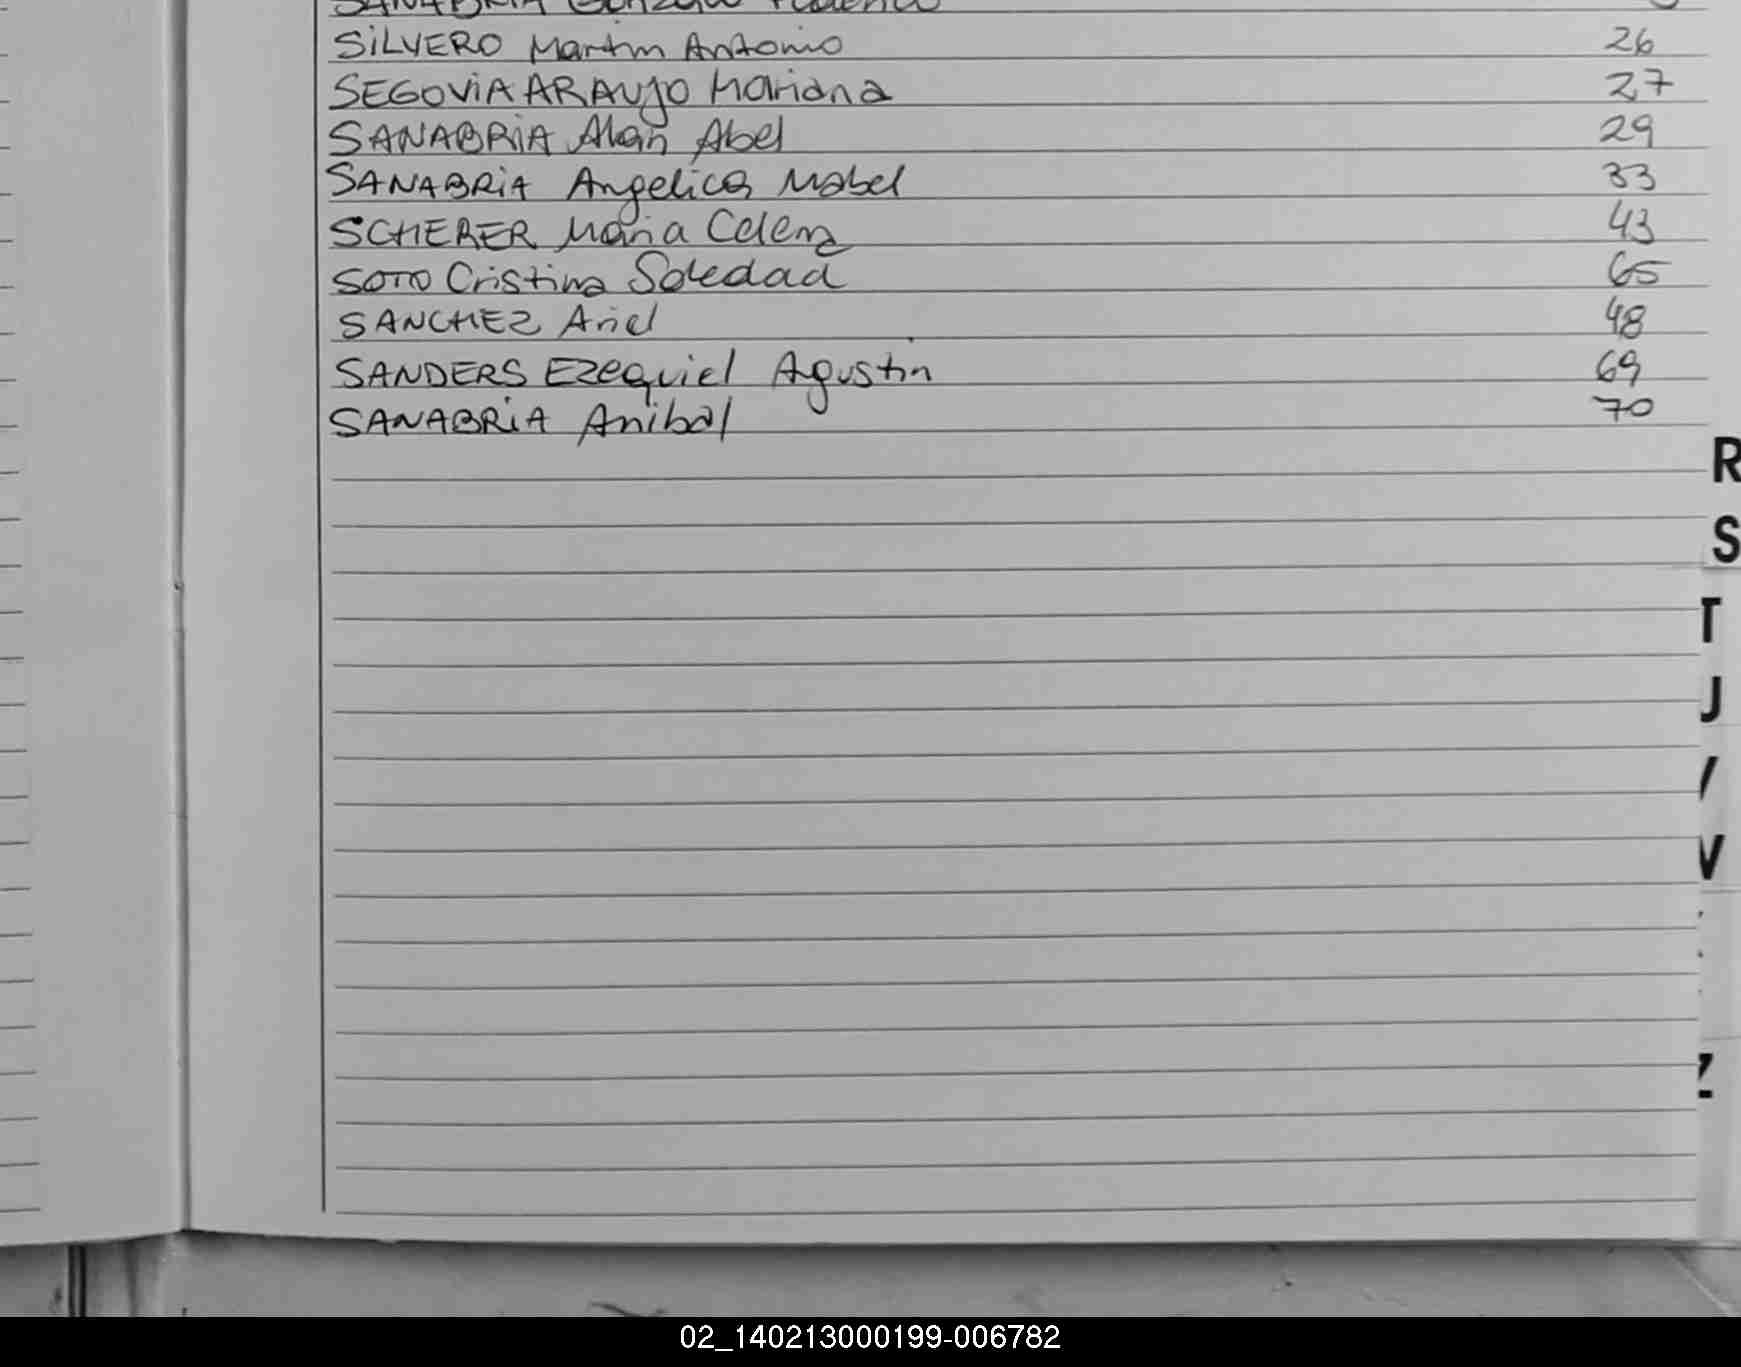 SANABRIA Gonzalo Federico
SiLVERO Martin Antonio 26
SEGOViA ARAUJO Mariana 27
SANABRiA Alan Abel 29
SANABRiA Angelica Mabel 33
SCHERER Maria Celena 43
SOTTO Cristina Soledad 65
SANCHEZ Ariel 48
SANDERS Ezequiel Agustin 69
SANABRiA Anibal 70
R
S
T
Z
02_140213000199-006782